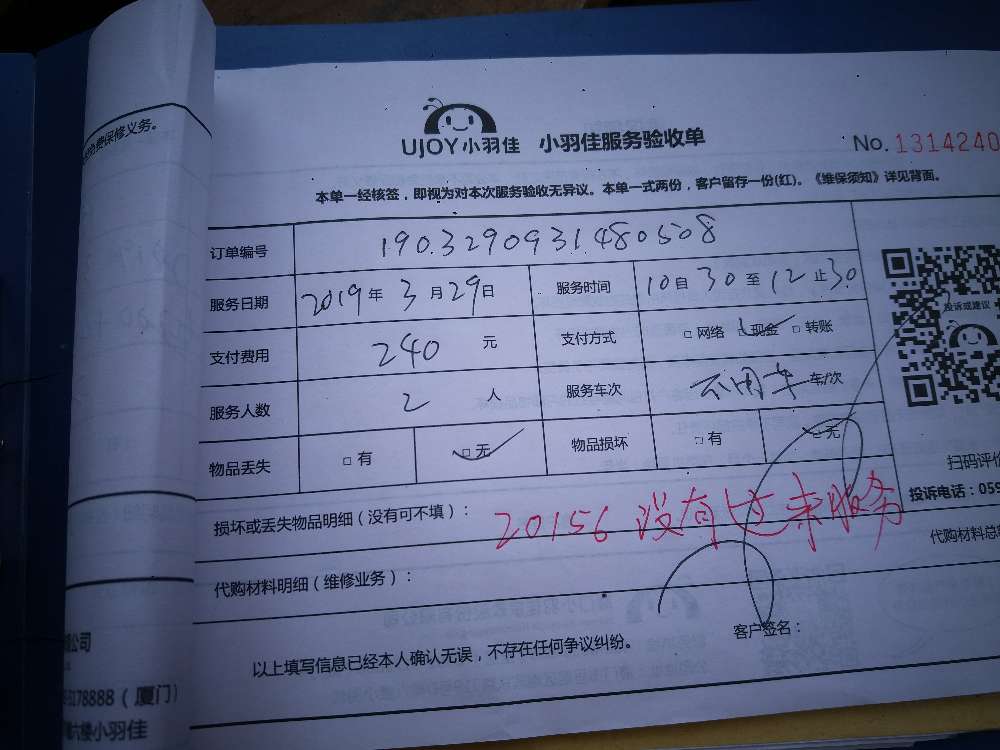 免费保修义务。
UJOY小羽佳 小羽佳服务验收单 No. 1314240
本单一经核签，即视为对本次服务验收无异议。本单一式两份，客户留存一份(红)。《维保须知》详见背面。
订单编号 1903290931480508
服务日期 2019年3月29日 服务时间 10自30至12止30
投诉或建议
支付费用 240 元 支付方式 □网络 □现金 □转账
服务人数 2 人 服务车次 不用车 车/次
物品丢失 □有 □无 物品损坏 □有 □无
扫码评价
投诉电话：059
损坏或丢失物品明细（没有可不填）： 20156 没有过来服务
代购材料总
代购材料明细（维修业务）：
客户签名：
以上填写信息已经本人确认无误，不存在任何争议纠纷。
公司
178888（厦门）
楼小羽佳